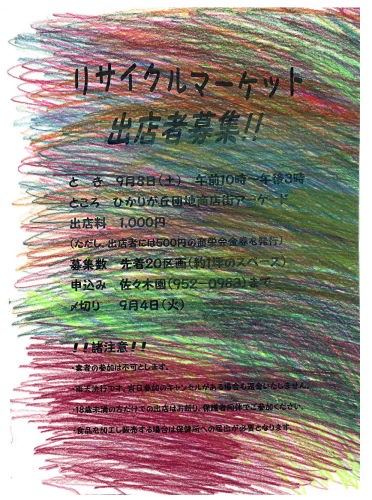 リサイクルマーケット
出店者募集!!
と き 9月8日(土) 午前10時～午後3時
ところ ひかりが丘団地商店街アーケード
出店料 1,000円
(ただし、出店者には500円の商栄会金券を発行)
募集数 先着20区画(約1坪のスペース)
申込み 佐々木園(952-0983)まで
〆切り 9月4日(火)
!!諸注意!!
・業者の参加は不可とします。
・雨天決行です。当日参加のキャンセルがある場合も返金いたしません。
・18歳未満の方だけでの出店はお断り、保護者同伴でご参加ください。
・食品を加工し販売する場合は保健所への届出が必要となります。